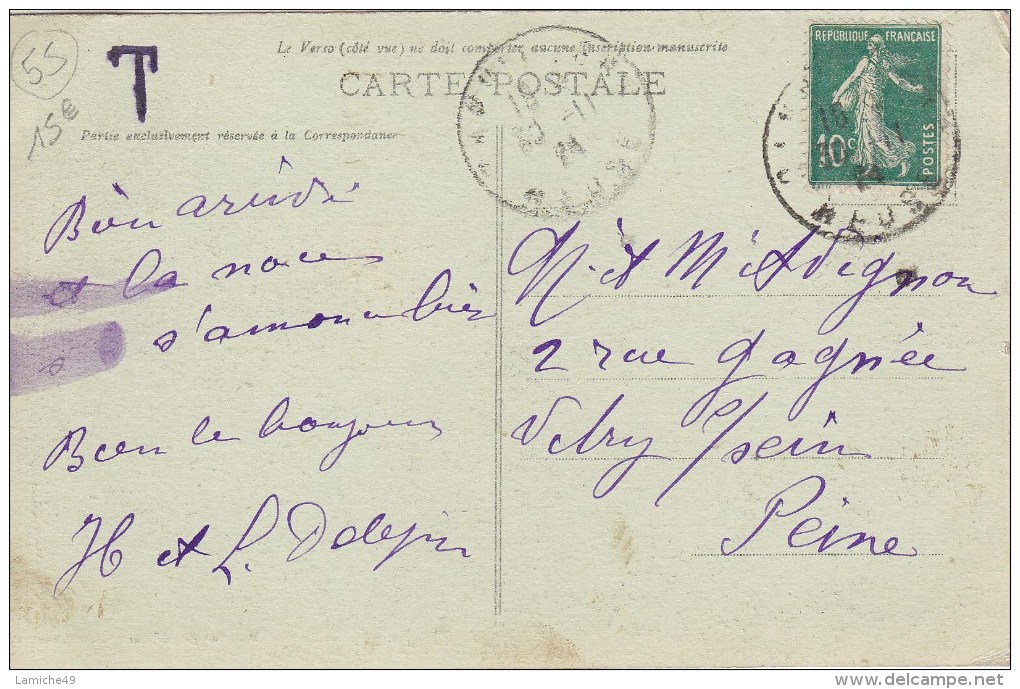 55
15€
T
Le Verso (côté vue) ne doit comporter aucune inscription manuscrite
CARTE POSTALE
Partie exclusivement réservée à la Correspondance
REPUBLIQUE FRANÇAISE
10c
POSTES
18
-11
MEUSE
Bien arrivé
et la noce
s'amon bien
Bien le bonjour
H et L. Delepin
Mr et Mme Avignon
2 rue Gagnée
Vitry s/sein
Seine
Lamiche49